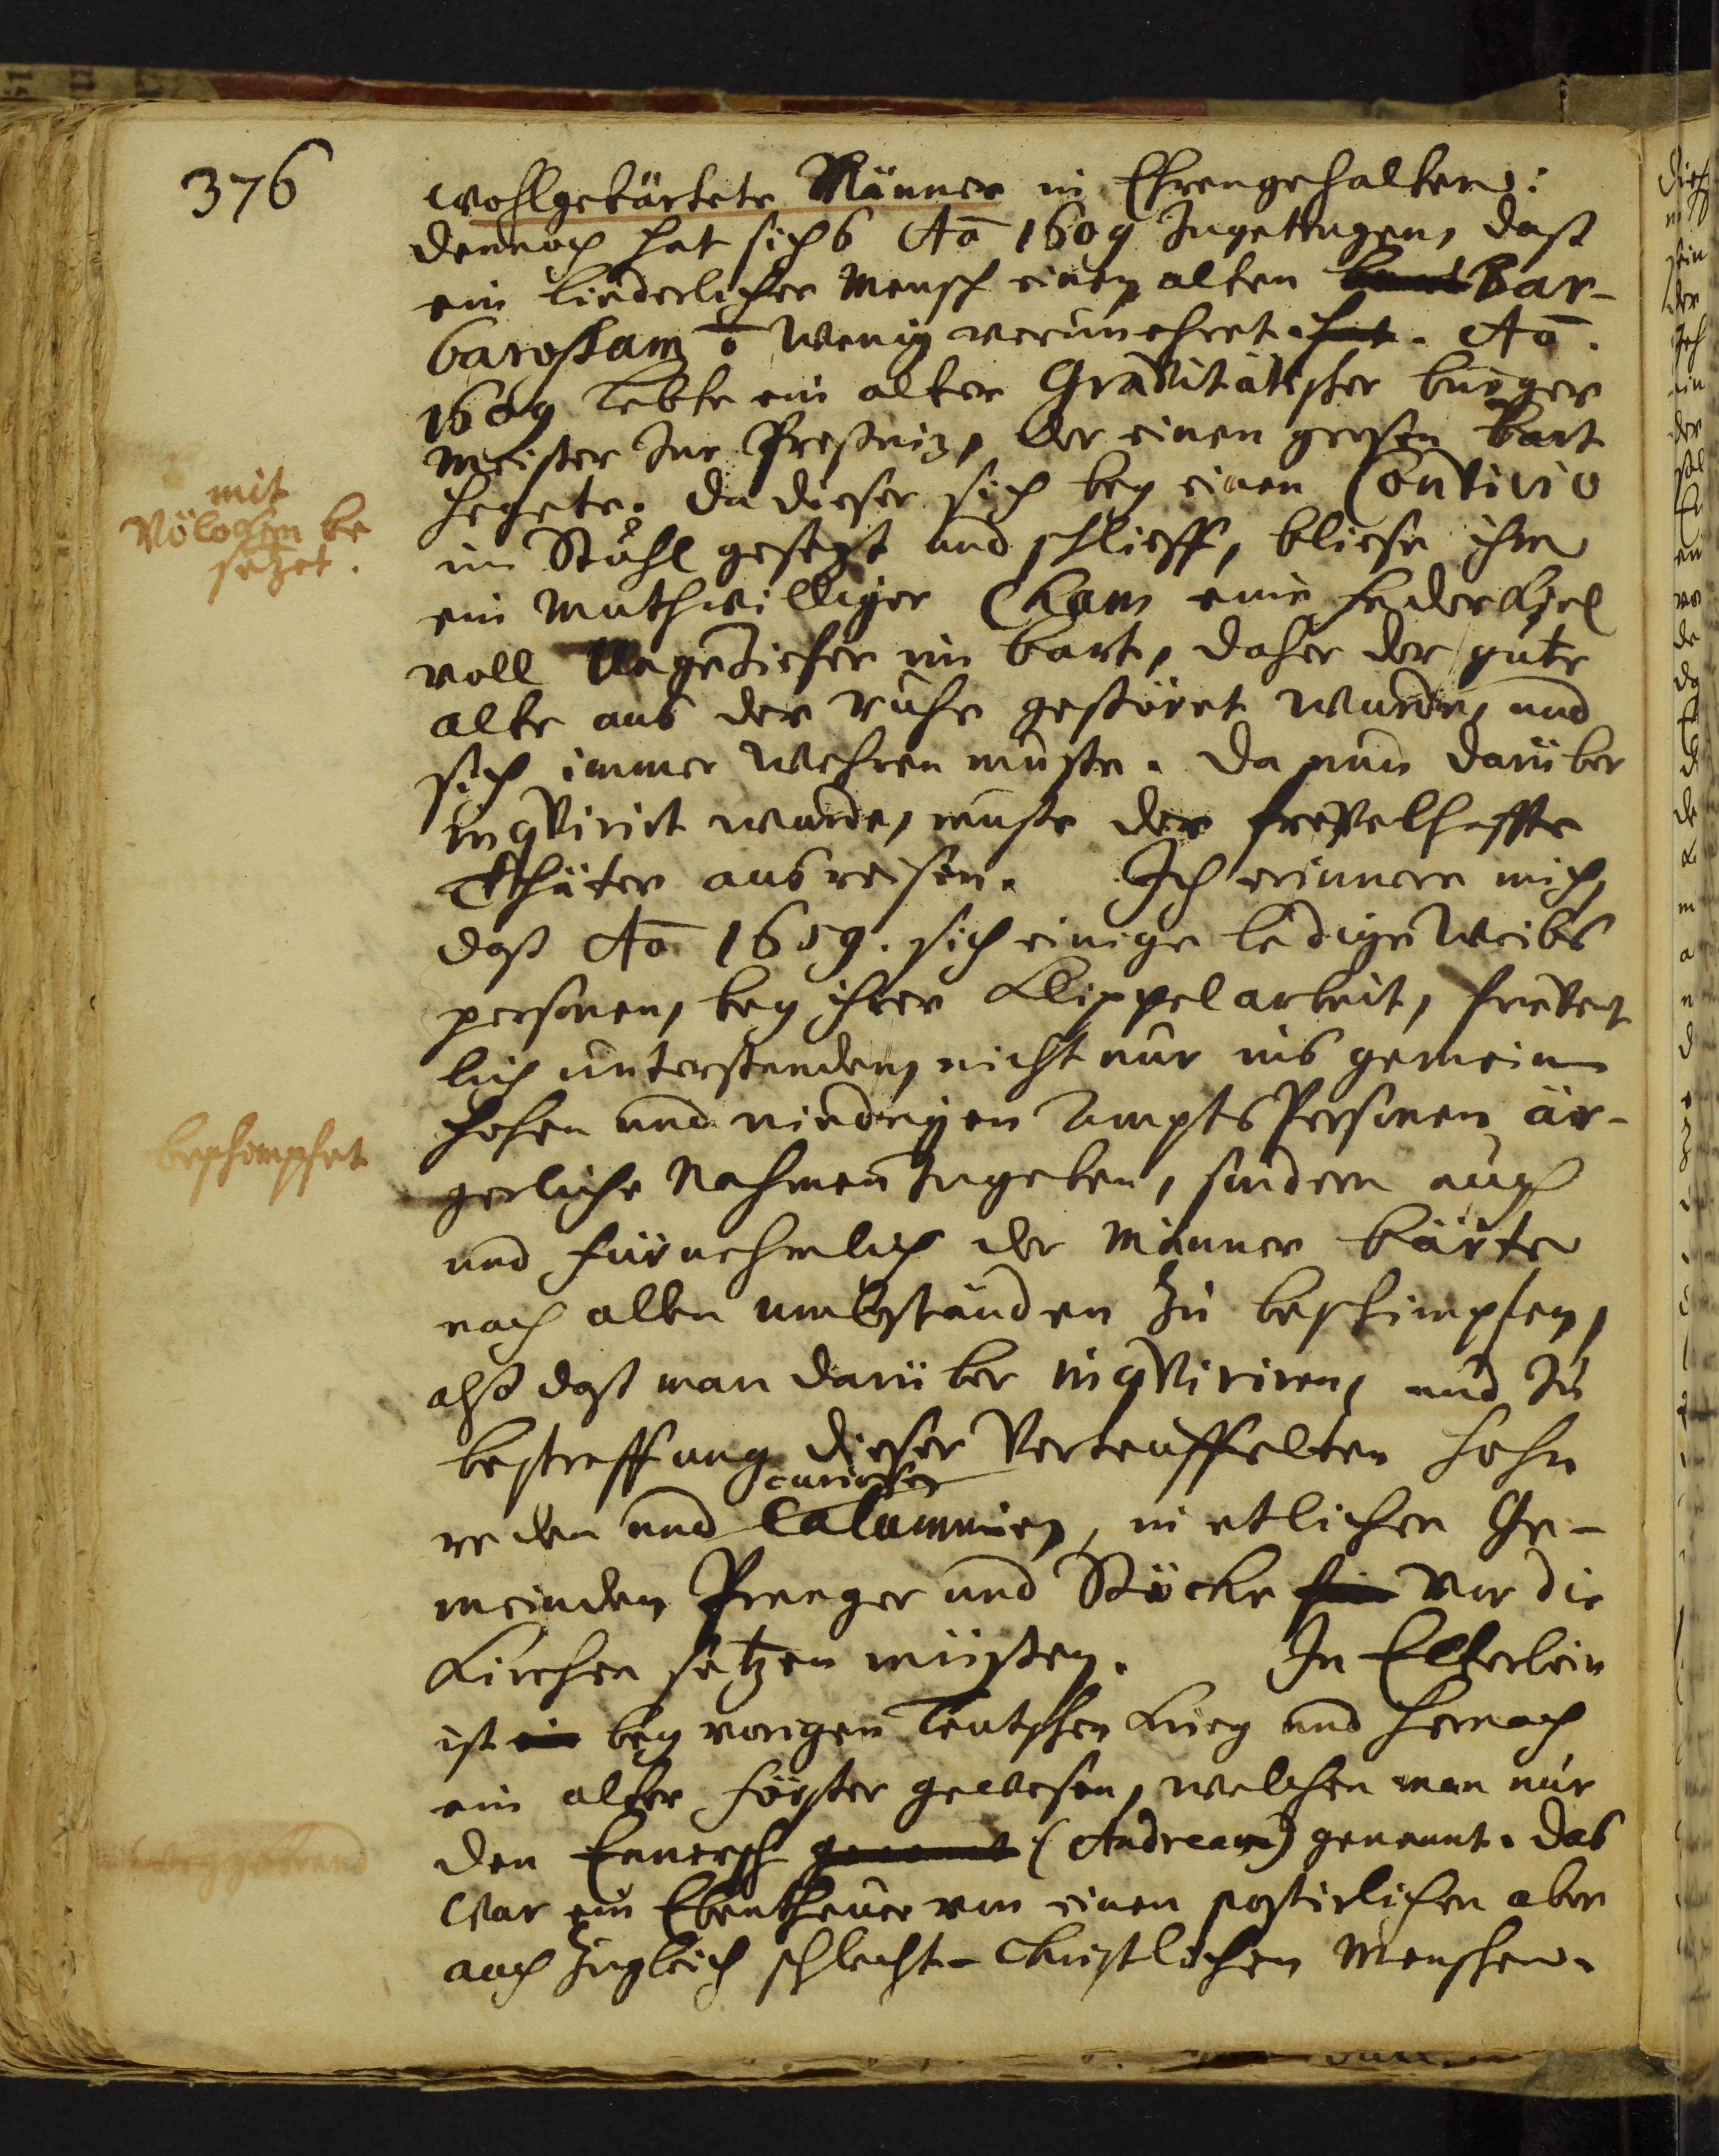 376
wohlgebärtete Männer in Ehren gehalten:
dennoch hat sichs Aō 1609 zugetragen, daß
ein liederlicher Mensch einen alten Bar-
barossam ō wenig verunehret. Aō.
1609 lebte ein alter Gravitätischer burger
meister zur Preßniz, der einen großen bart
hegete. da dieser sich bey einen Convivio
im Stuhl gesezt und schlieff, bliese ihm
ein muthwilliger Cham eine federkiel
voll Ungeziefer in bart, daher der gute
alte aus der ruhe gestöret wurde, und
sich immer wehren muste. da nun darüber
inqvirirt wurde, muste der frevelhaffte
Thäter ausreisen. Ich erinnere mich,
daß Aō 1659. sich einige ledige Weibs
personen, bey ihrer Klippelarbeit, frevent
lich unterstanden, nicht nur ins gemein
hohen und niedrigen Ampts Personen är-
gerliche Nahmen zugeben, sondern auch
und fürnehmlich der Männer bärte
nach allen umbständen zu beschimpfen,
also daß man darüber inqviriren, und zu
bestraffung dieser Verteuffelten hohn
reden und Calumnien, in etlichen Ge-
meinden Prenger und Stöcke vor die
Kirchen setzen müßen. In Elterlein
ist bey vorigen Teutschen Krieg und hernach
ein alter förster gewesen, welchen man nur
den Ennersch (Andream) genennt. das
war ein Ebentheuer von einen possirlichen aber
auch zugleich schlecht-Christlichen Menschen.
mit
be
setzet.
beschimpfet